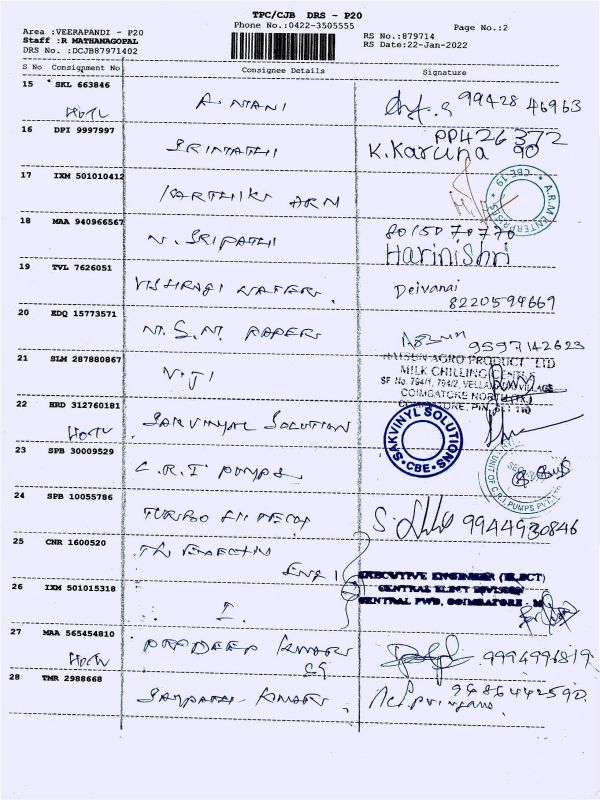 TPC/CJB DRS - P20
Phone No.:0422-3505555
Page No.:2
Area :VEERAPANDI - P20
Staff :R MATHANAGOPAL
DRS No. :DCJB87971402
RS No.:879714
RS Date:22-Jan-2022
S No Consignment No Consignee Details Signature
15 SKL 663846
A. MANI
99428 46963
16 DPI 9997997
PP426372
K.Karuna 90
17 IXM 501010412
KARTHIK ARM
A.R.M ENTERPRISES CBE-19
18 MAA 940966567
N. SRIPATHI
8015070770
Harinishri
19 TVL 7626051
Deivanai
8220594669
20 EDQ 15773571
M.S.M. PAPERS
9597142623
21 SLM 287880867
V.J I
HATSUN AGRO PRODUCT LTD
MILK CHILLING CENTRE
SF No. 794/1, 794/2, VELLANUR VILLAGE
COIMBATORE NORTH (TK)
COIMBATORE, PIN
22 HRD 312760181
SAKVINYL SOLUTION
SAKVINYL SOLUTIONS CBE
23 SPB 30009529
C.R.I PUMPS
UNIT OF C.R.I. PUMPS PVT LTD
24 SPB 10055786
TURBO
9944930846
25 CNR 1600520
EXECUTIVE ENGINEER (ELECT)
CENTRAL ELECT DIVISION
CENTRAL PWD, COIMBATORE
26 IXM 501015318
I.
27 MAA 565454810
PRADEEP KUMAR
9994996819
28 TMR 2988668
SAMPATH KUMAR
9486442590